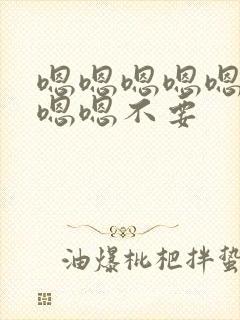 嗯嗯嗯嗯嗯
嗯嗯不要
油爆枇杷拌蛰